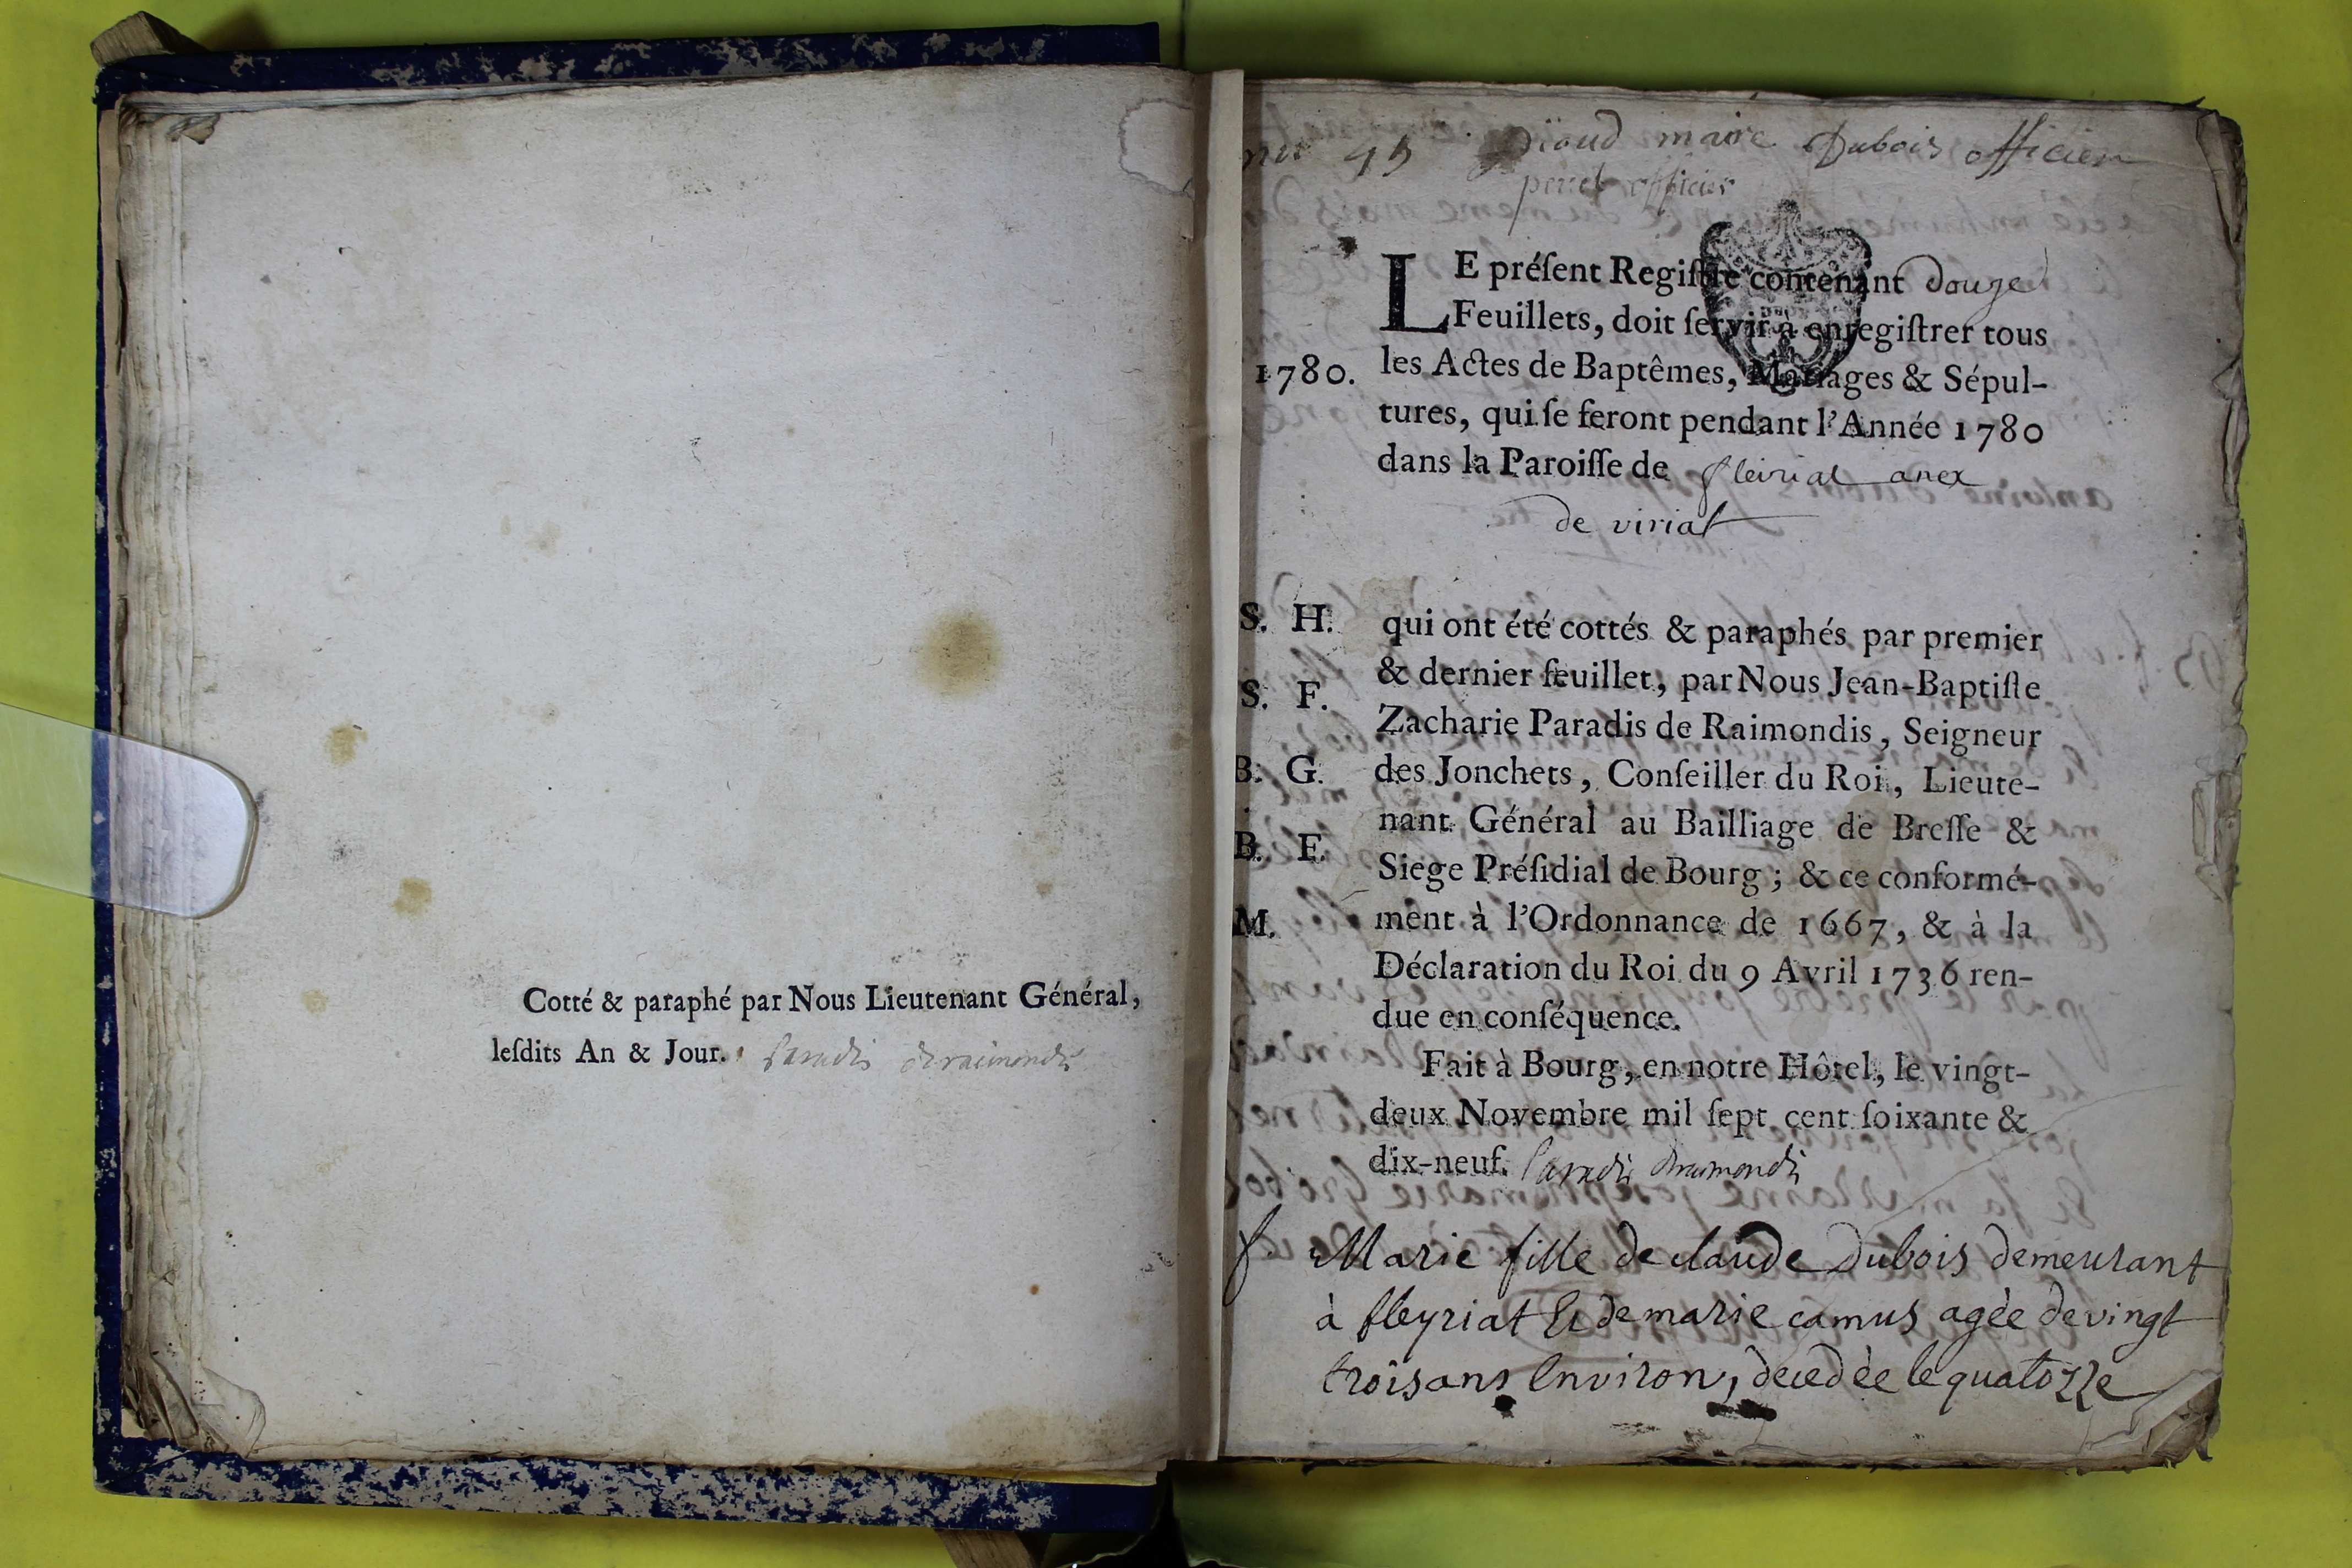 Cotté & paraphé par Nous Lieutenant Général,
leſdits An & Jour. Paradis deraimondis
maire Dubois officier
perret officier
LE préſent Regiſtre contenant douze
Feuillets, doit ſervir à enregiſtrer tous
1780. les Actes de Baptêmes, Mariages & Sépul-
tures, qui ſe feront pendant l'Année 1780
dans la Paroiſſe de fleiriat anex
de viriat
S. H. qui ont été cottés & paraphés par premier
& dernier feuillet, par Nous Jean-Baptiſte
S. F.
Zacharie Paradis de Raimondis, Seigneur
B. G. des Jonchets, Conſeiller du Roi, Lieute-
nant Général au Bailliage de Breſſe &
B. F.
Siege Préſidial de Bourg; & ce conformé-
M. ment à l'Ordonnance de 1667, & à la
Déclaration du Roi du 9 Avril 1736 ren-
due en conſéquence.
Fait à Bourg, en notre Hôtel, le vingt-
deux Novembre mil ſept cent ſoixante &
dix-neuf. Paradis deraimondis
f. Marie fille de claude Dubois demeurant
à fleyriat & de marie camus agèe de vingt
trois ans Environ, decedèe le quatorze